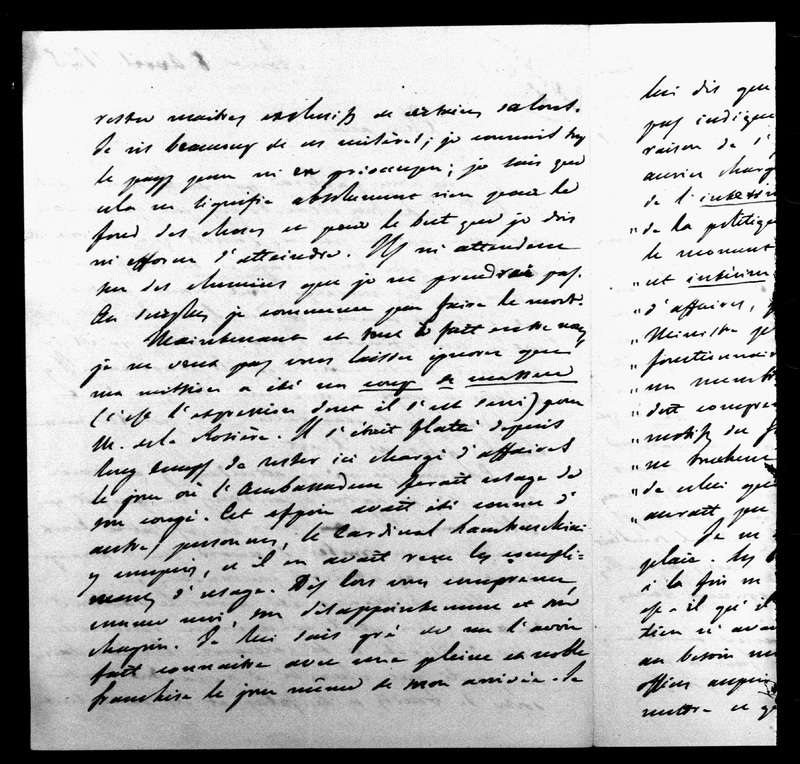 rester maitres exclusifs de certains salons.
Je ris beaucoup de ces misères; je connais trop
le pays pour m'en préoccuper; je sais que
cela ne signifie absolument rien pour le
fond des choses et pour le but que je dois
m'efforcer d'atteindre. Ils m'attendent
sur des chemins que je ne prendrai pas.
Au surplus je commence par faire le mort.
Maintenant et tout à fait entre nous,
je ne veux pas vous laisser ignorer que
ma mission a été un coup de massue
(c'est l'expression dont il s'est servi) pour
M. de la Rosière. Il s'était flatté depuis
long temps de rester ici chargé d'affaires
le jour où l'Ambassadeur ferait usage de
son congé. Cet espoir avait été connu d'
autres personnes, le Cardinal Lambruschini
y compris, et il en avait reçu les compli-
ments d'usage. Dès lors vous comprenez,
comme moi, son désappointement et son
chagrin. Je lui sais gré de me l'avoir
fait connaître avec une pleine et noble
franchise le jour même de mon arrivée. Je
lui dis que
pas indique
raison de l'
aurior charg
de l'intérim
"de la politique
le moment
"cet intérim
"d'affaires,
"Ministre
"fonctionnaire
"un memb
"doit compre
"motifs du
"de celui que
"aurait pu
Je ne
plait. Les
à la fois
tien
au besoin
offices
mettre